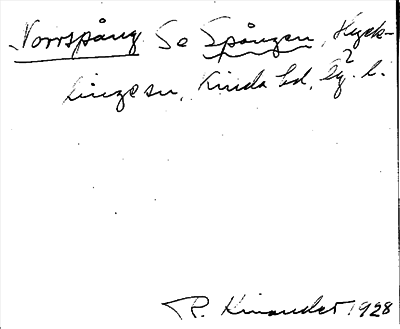 Norrspång Se Spången, Hyck-
linge sn, Kinda hd, Ög. l.
R. Kinander 1928